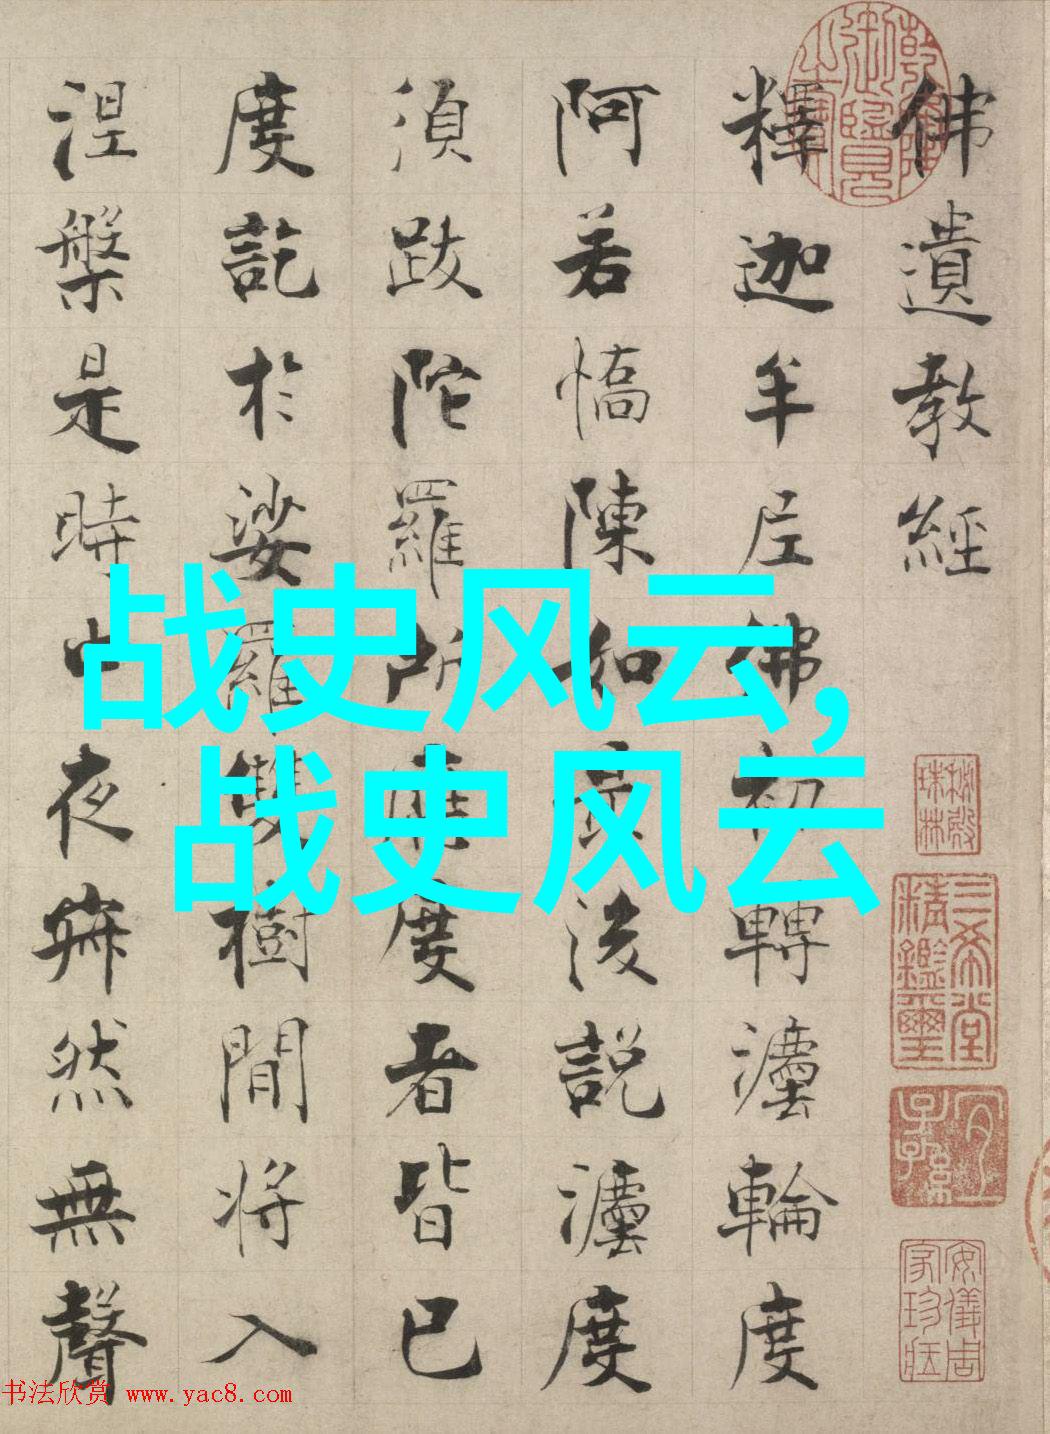 佛遺教經
釋迦牟尼佛初轉灋輪度
阿若憍陳如寂後說灋度
須跋陀羅所應度者皆已
度訖於娑羅雙樹間將入
涅槃是時中夜寂然無聲
战史风云,
战史风云
三希堂精鑑璽
秘殿珠林
书法欣赏 www.yac8.com